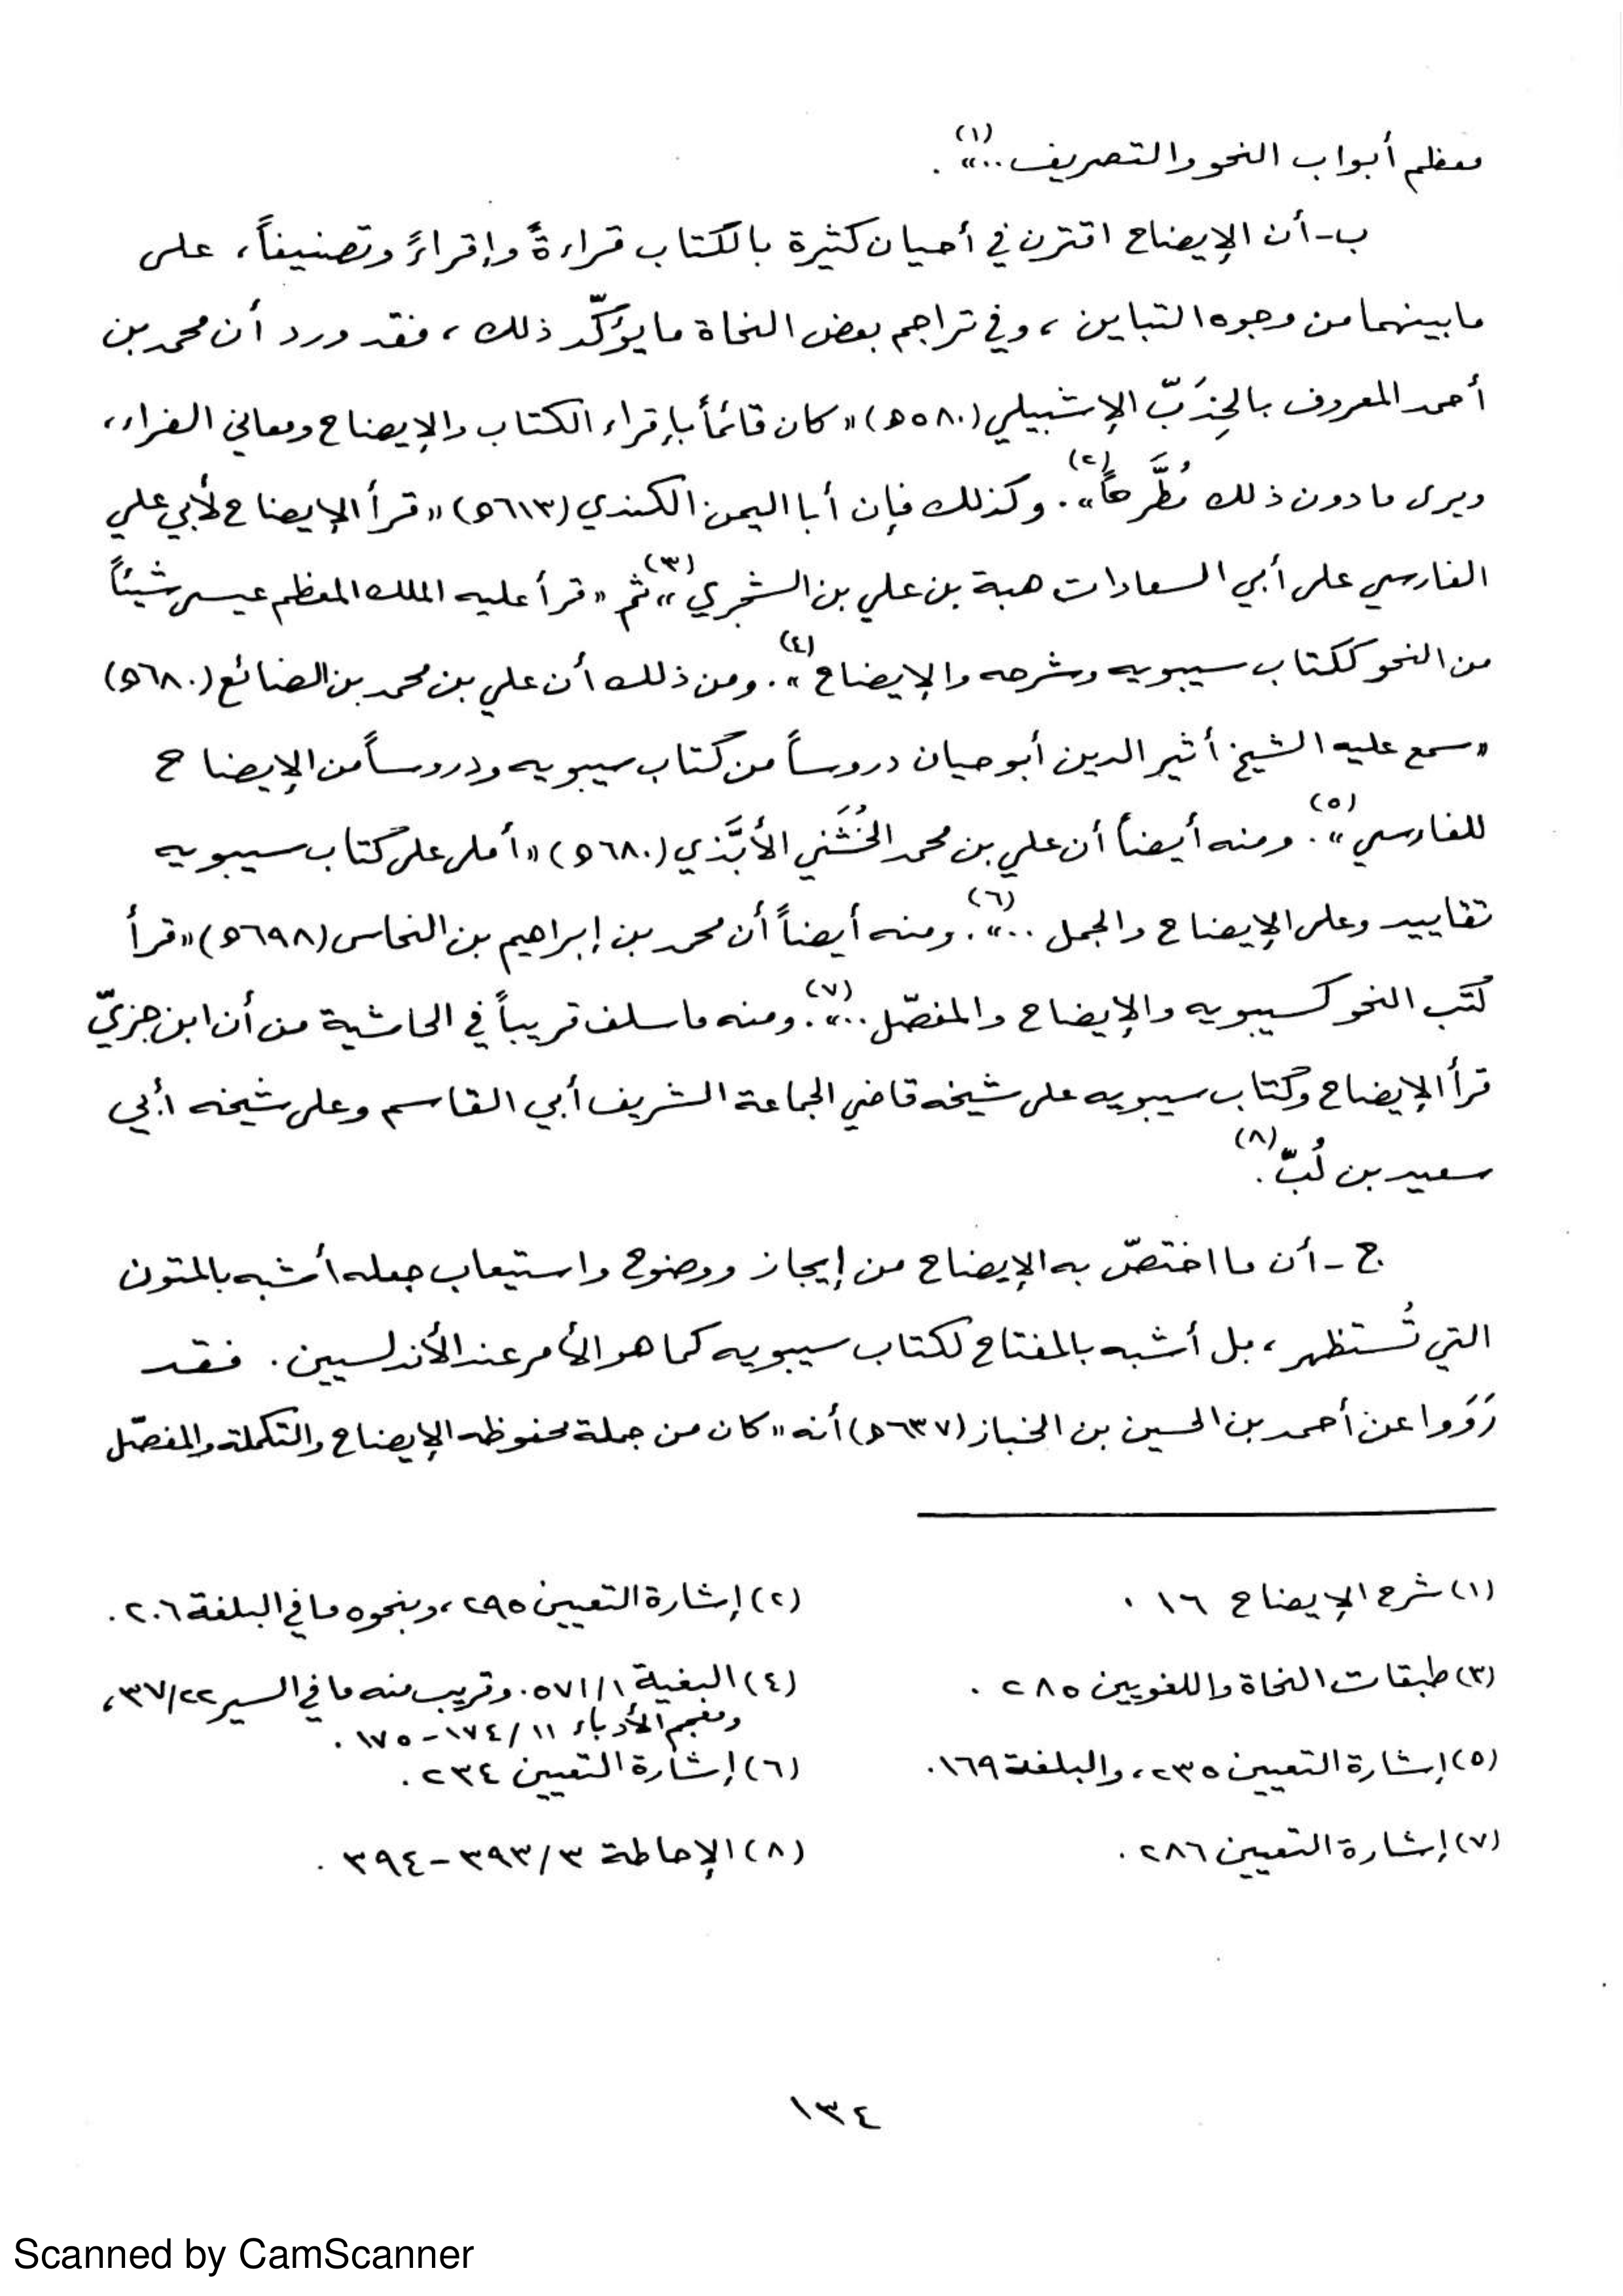 معظم أبواب النحو والتصريف ..»(١) .
ب- أن الإيضاح اقترن في أحيان كثيرة بالكتاب قراءةً وإقراءً وتصنيفاً ، على
ما بينهما من وجوه التباين ، وفي تراجم بعض النحاة ما يؤكّد ذلك ، فقد ورد أن محمد بن
أحمد المعروف بالخِدَبّ الإشبيلي (٥٨٠ه) «كان قائماً بإقراء الكتاب والإيضاح ومعاني الفراء ،
ويرى ما دون ذلك مُطَّرحاً»(٢). وكذلك فإن أبا اليمن الكندي (٦١٣ه) «قرأ الإيضاح لأبي علي
الفارسي على أبي السعادات هبة بن علي بن الشجري»(٣) ثم «قرأ عليه الملك المعظم عيسى شيئاً
من النحو ككتاب سيبويه وشرحه والإيضاح»(٤). ومن ذلك أن علي بن محمد بن الضائع (٦٨٠ه)
«سمع عليه الشيخ أثير الدين أبو حيان دروساً من كتاب سيبويه ودروساً من الإيضاح
للفارسي»(٥). ومنه أيضاً أن علي بن محمد الخُشَني الأبَّذي (٦٨٠ه) «أملى على كتاب سيبويه
تقاييد وعلى الإيضاح والجمل ..»(٦). ومنه أيضاً أن محمد بن إبراهيم بن النحاس (٦٩٨ه) «قرأ
كتب النحو كسيبويه والإيضاح والمفصّل ..»(٧). ومنه ما سلف قريباً في الحاشية من أن ابن جزيّ
قرأ الإيضاح وكتاب سيبويه على شيخه قاضي الجماعة الشريف أبي القاسم وعلى شيخه أبي
سعيد بن لُبّ(٨).
ج - أن ما اختصّ به الإيضاح من إيجاز ووضوح واستيعاب جعله أشبه بالمتون
التي تُستظهر ، بل أشبه بالمفتاح لكتاب سيبويه كما هو الأمر عند الأندلسيين . فقد
رَوَوا عن أحمد بن الحسين بن الخباز (٦٣٧ه) أنه «كان من جملة محفوظه الإيضاح والتكملة والمفصّل
(١) شرح الإيضاح ١٦ .
(٢) إشارة التعيين ٢٩٥ ، وبنحوه ما في البلغة ٢٠٦ .
(٣) طبقات النحاة واللغويين ٢٨٥ .
(٤) البغية ١/ ٥٧١. وقريب منه ما في السير ٢٢/ ٣٧ ،
ومعجم الأدباء ١١/ ١٧٤ - ١٧٥ .
(٥) إشارة التعيين ٢٣٥ ، والبلغة ١٦٩ .
(٦) إشارة التعيين ٢٣٤ .
(٧) إشارة التعيين ٢٨٦ .
(٨) الإحاطة ٣/ ٣٩٣ - ٣٩٤ .
١٣٤
Scanned by CamScanner